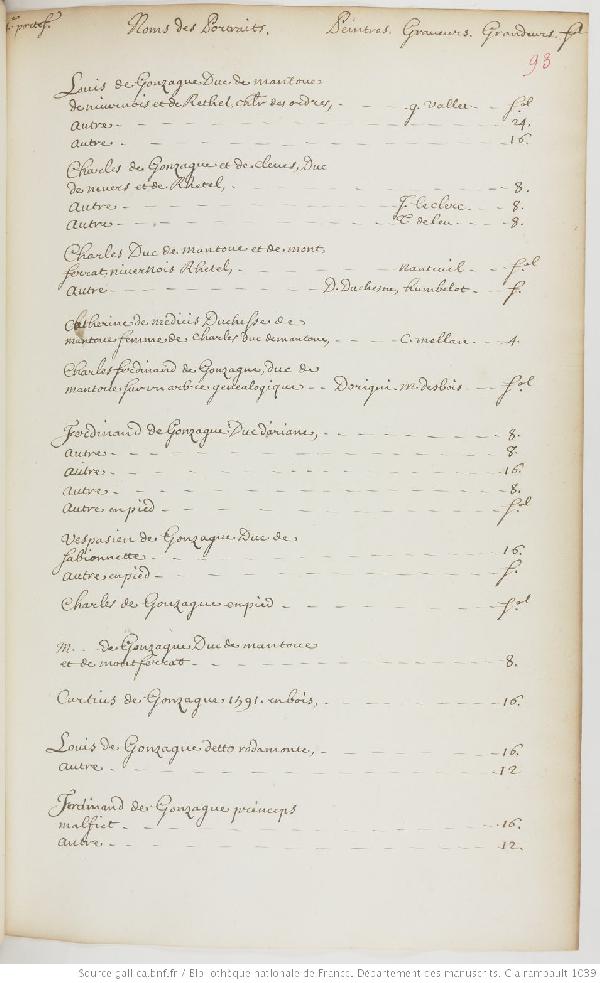 portef. Noms des Portraits. Peintres. Graveurs. Grandeurs. fol
93
Louis de Gonzague Duc de mantoue
de nivernois et de Rethel, chlr des ordres, - - - g. Vallet - - fol
autre - - - 24.
autre - - - 16.
Charles de Gonzague et de cleves, Duc
de nevers et de Rhetel, - - - 8.
autre - - - J. leclerc - - 8.
autre - - - T. de leu - - 8.
Charles Duc de mantoue et de mont
ferrat, nivernois Rhetel, - - - nanteuil - - fol
autre - - - D. Duchesne, humbelot - - f.
Catherine de medicis Duchesse de
mantoue femme de Charles Duc de mantoue, - - - C. mellan - - 4.
Charles ferdinand de Gonzague, duc de
mantoue sur un arbre genealogique - - - Dorigni. m. desbois - - fol
Ferdinand de Gonzague Duc d'ariane, - - - 8.
autre - - - 8.
autre - - - 16.
autre - - - 8.
autre en pied - - - fol
Vespasien de Gonzague Duc de
sabionnette - - - 16.
autre en pied - - - f.
Charles de Gonzague en pied - - - fol
M. . . de Gonzague Duc de mantoue
et de montferrat - - - 8.
Curtius de Gonzague 1591. en bois, - - - 16.
Louis de Gonzague detto rodamonte, - - - 16.
autre - - - 12
Ferdinand de Gonzague princeps
malfict - - - 16.
autre - - - 12.
Source gallica.bnf.fr / Bibliothèque nationale de France. Département des manuscrits. Clairambault 1039